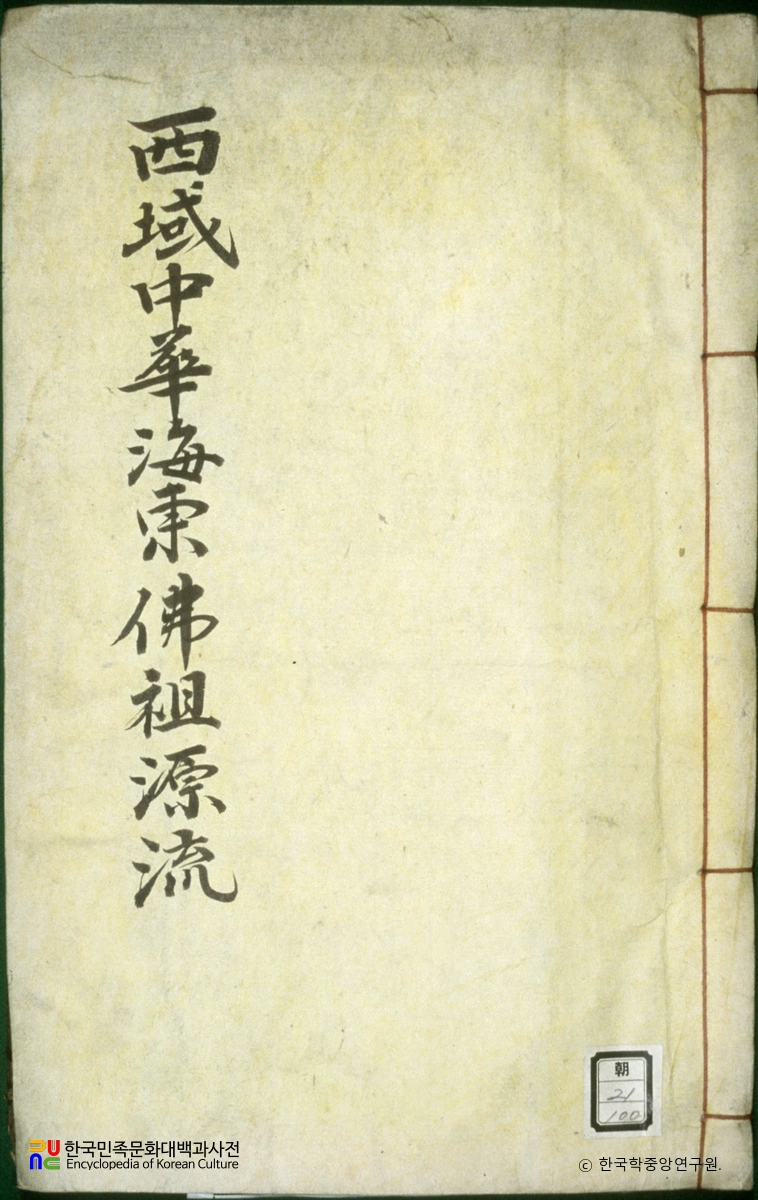 西域中華海東佛祖源流
朝
21
100
한국민족문화대백과사전
Encyclopedia of Korean Culture
© 한국학중앙연구원.